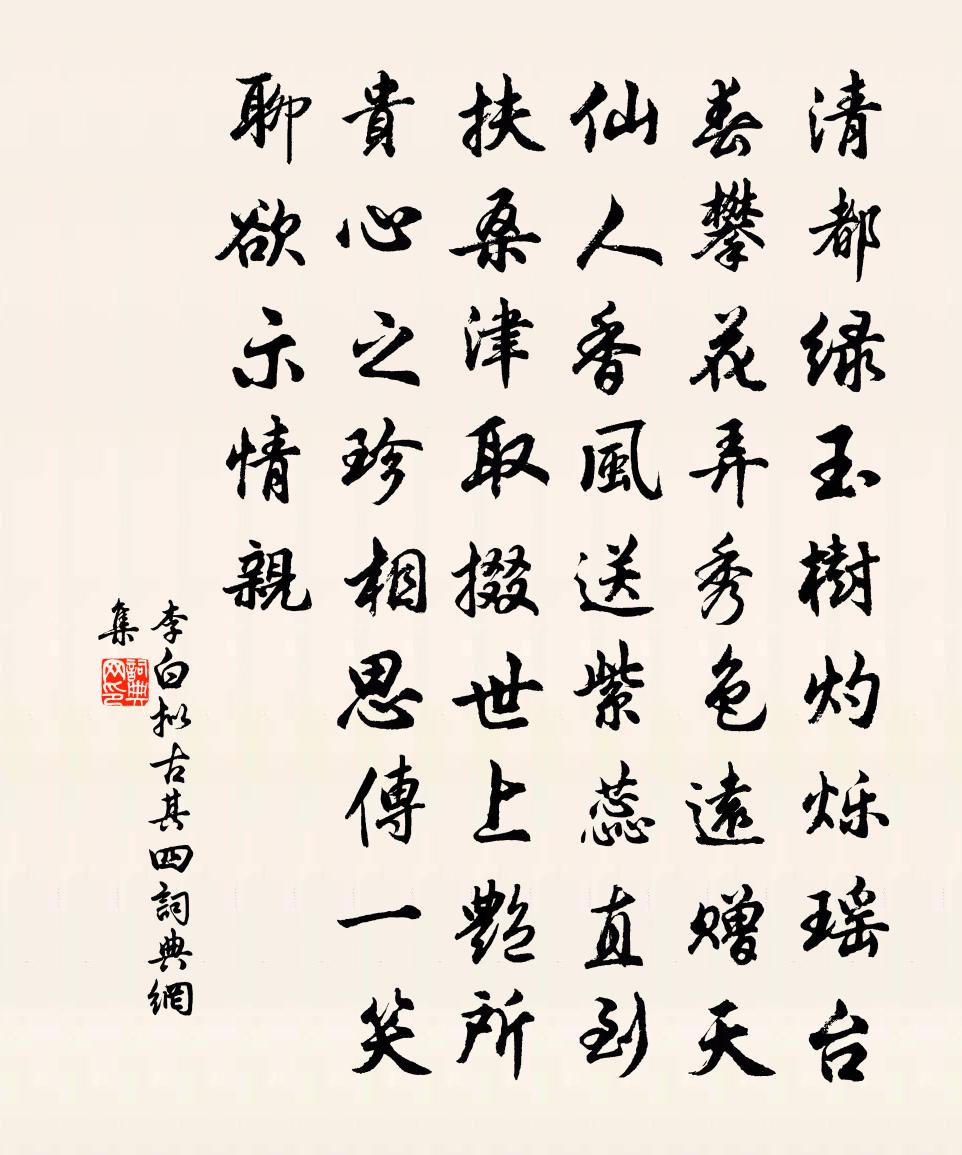 清都绿玉樹灼烁瑶台
春攀花弄秀色遠赠天
仙人香風送紫蕊直到
扶桑津取掇世上艷所
貴心之珍相思傳一笑
聊欲示情親
李白拟古其四詞典網
集
詞典
网印